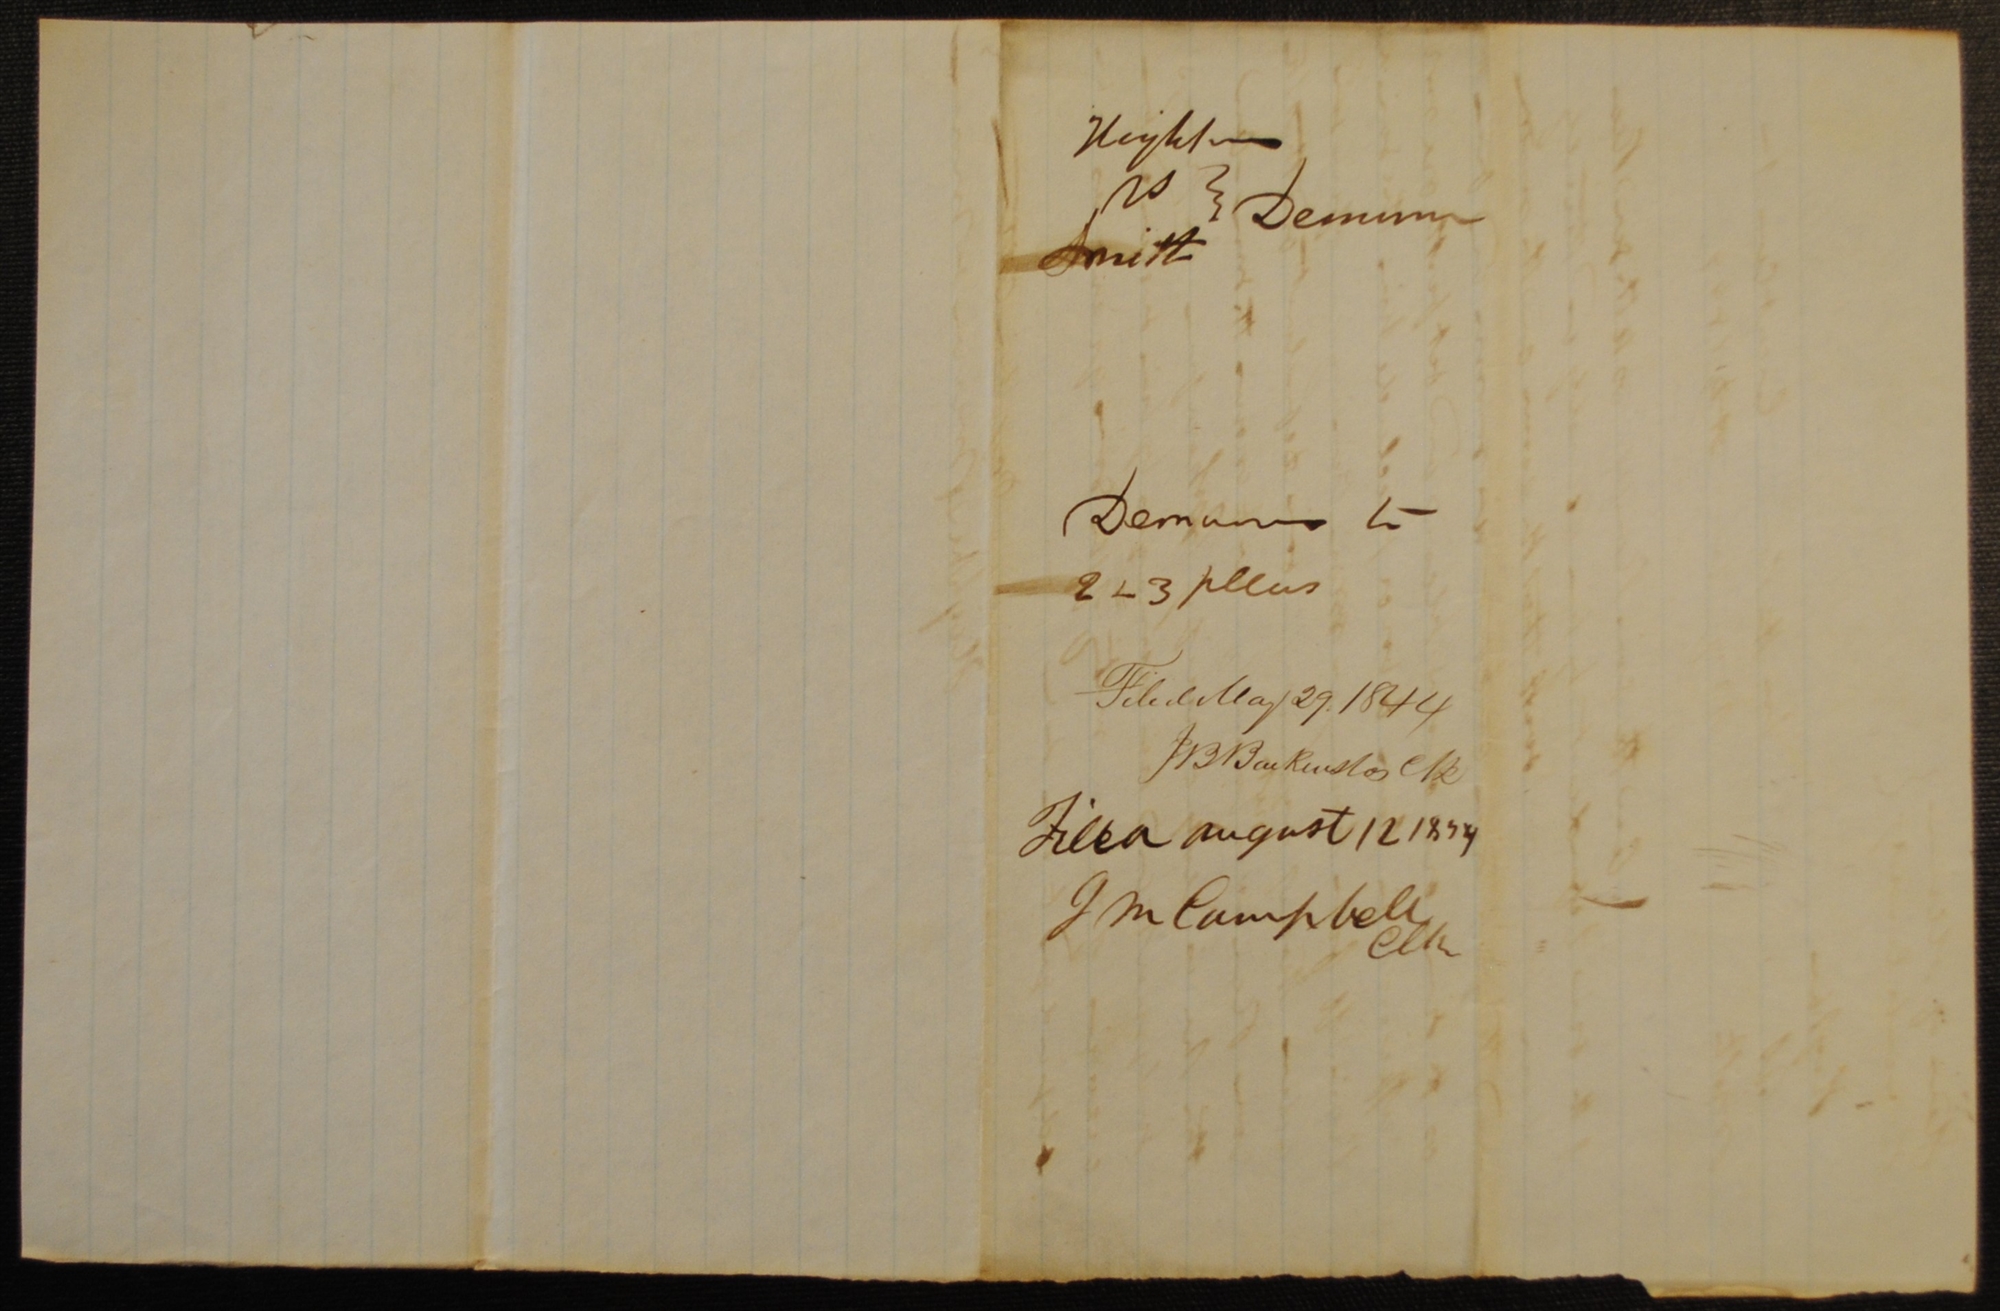 Hightower
vs } Demurrer
Smith
Demurrer to
2 & 3 pleas
Filed May 29. 1844
J B Backenstos Clk
Filed august 12 1844
J M Campbell
Clk